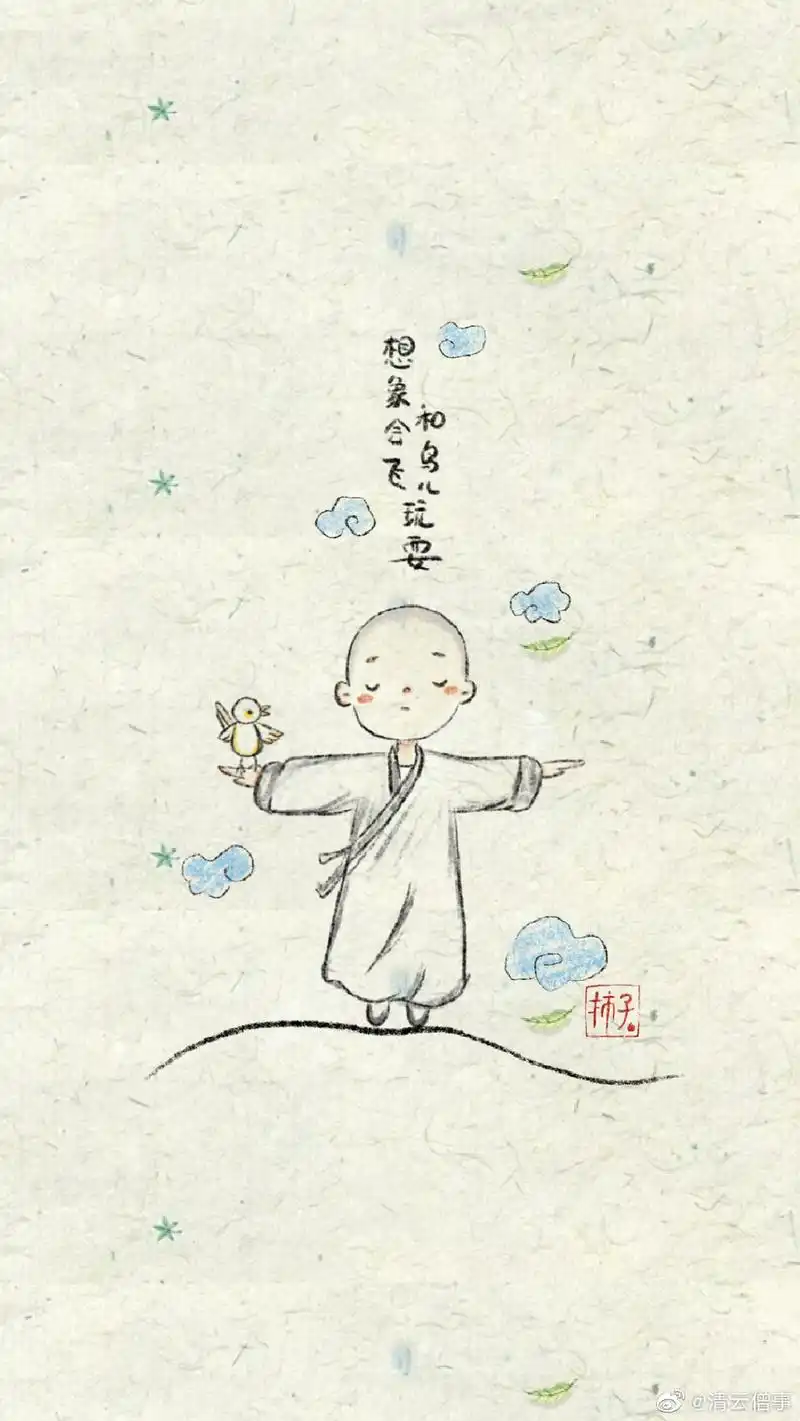 想象会飞
和鸟儿玩耍
柿子
@清云僧事